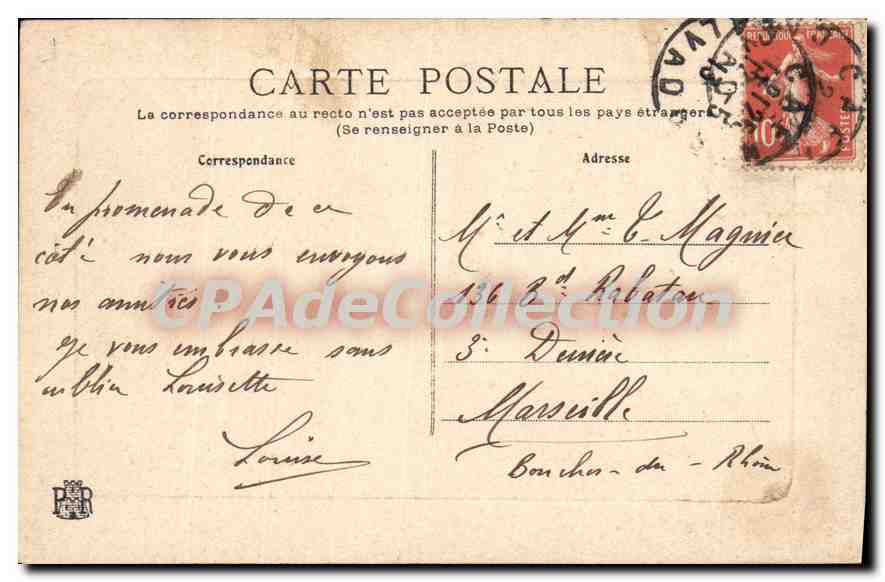 CARTE POSTALE
La correspondance au recto n'est pas acceptée par tous les pays étrangers
(Se renseigner à la Poste)
Correspondance
Adresse
En promenade de ce
côté nous vous envoyons
nos amitiés.
Je vous embrasse sans
oublier Louisette
Louise
Mr et Mme T. Magnier
136 Bd Rabatau
3e Derrière
Marseille
Bouches-du-Rhône
CPAdeCollection
PR
REPUBLIQUE FRANÇAISE
10
POSTES
CALVADOS